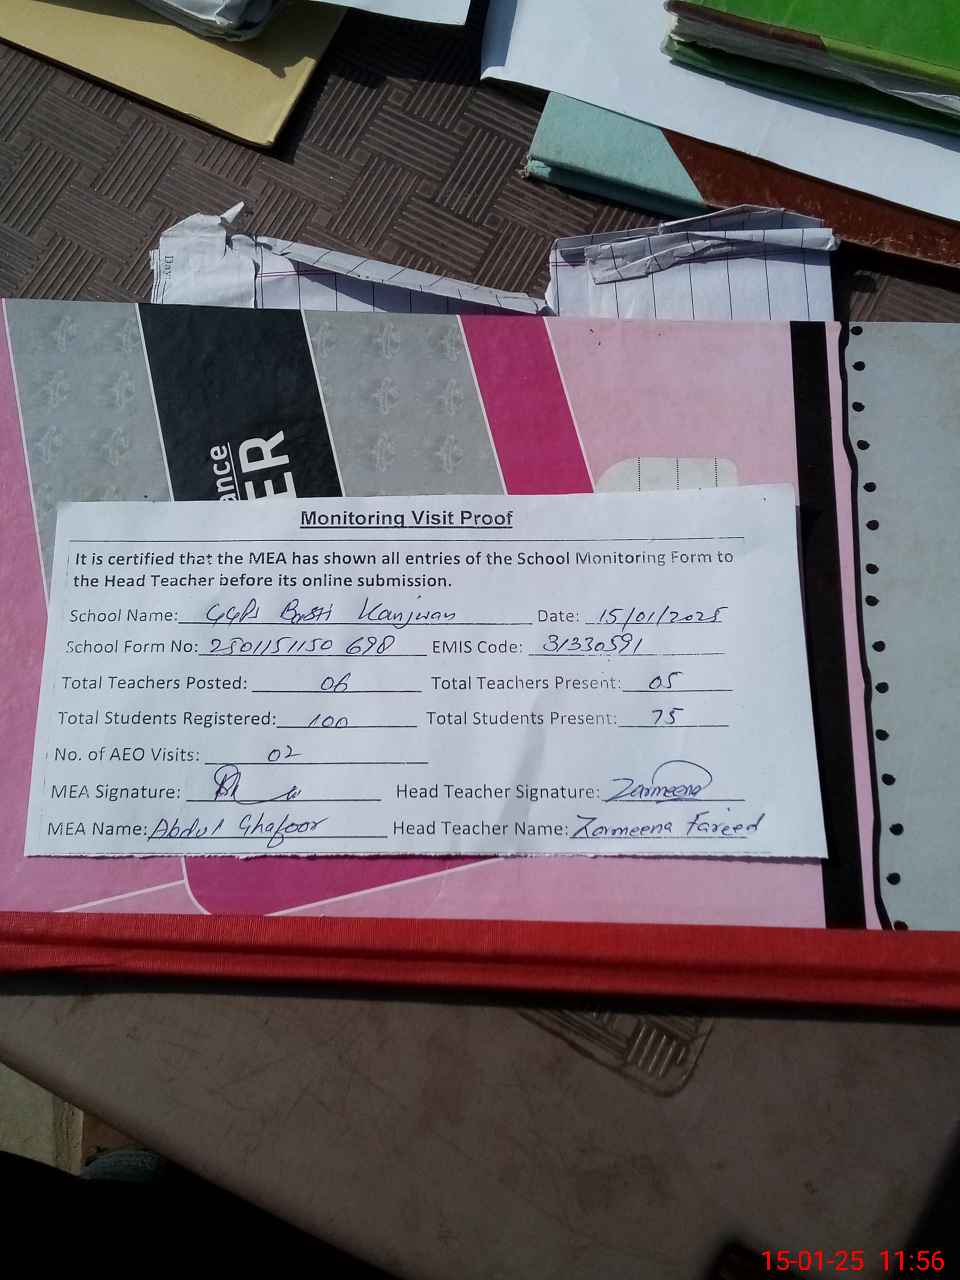 Day:
ance
ER
Monitoring Visit Proof
It is certified that the MEA has shown all entries of the School Monitoring Form to
the Head Teacher before its online submission.
School Name: GGPS Basti Kanjwan Date: 15/01/2025
School Form No: 2501151150 698 EMIS Code: 31330591
Total Teachers Posted: 06 Total Teachers Present: 05
Total Students Registered: 100 Total Students Present: 75
No. of AEO Visits: 02
MEA Signature: Head Teacher Signature: Zarmeena
MEA Name: Abdul Ghafoor Head Teacher Name: Zarmeena Fareed
15-01-25 11:56